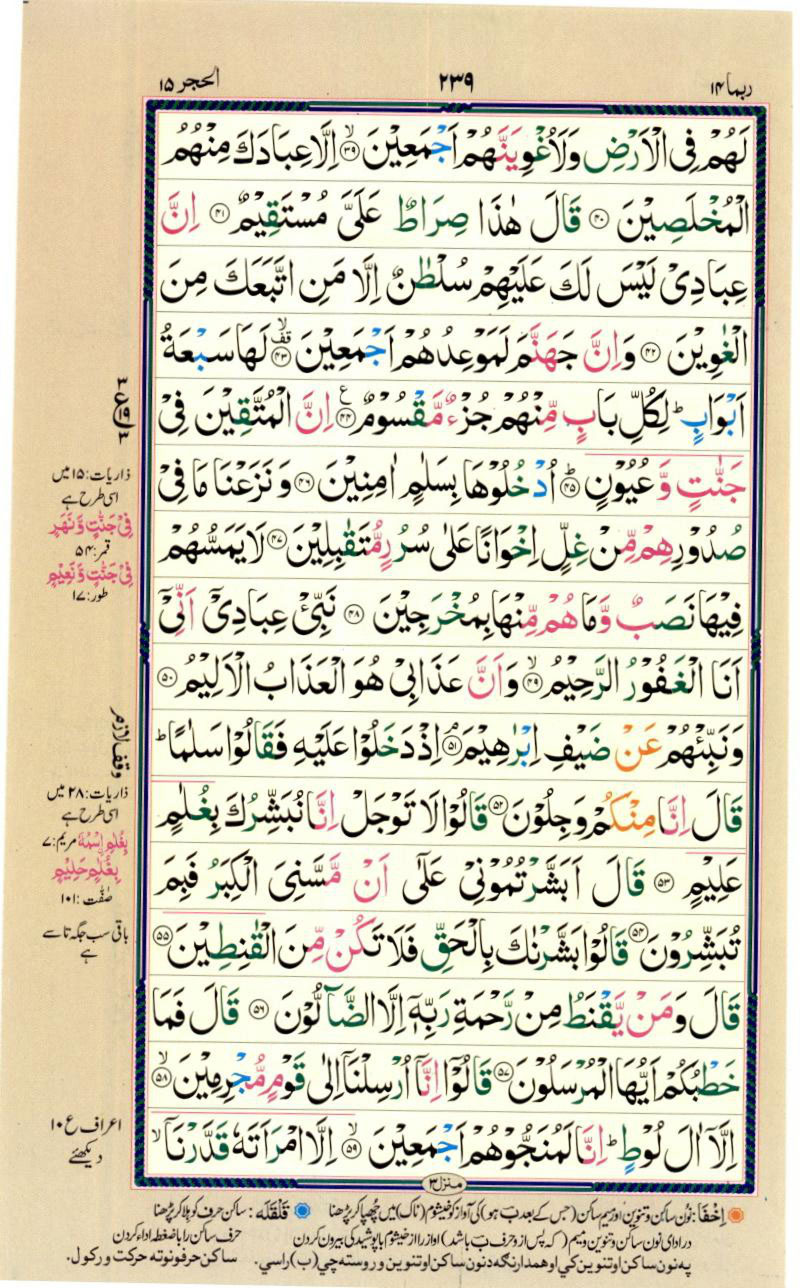 ربما ۱۴
۲۳۹
الحجر ۱۵
لَهُمْ فِى الْاَرْضِ وَلَاُغْوِيَنَّهُمْ اَجْمَعِيْنَ ۙ‏﴿۳۹﴾ اِلَّا عِبَادَكَ مِنْهُمُ
الْمُخْلَصِيْنَ ﴿۴۰﴾ قَالَ هٰذَا صِرَاطٌ عَلَىَّ مُسْتَقِيْمٌ ﴿۴۱﴾ اِنَّ
عِبَادِىْ لَيْسَ لَكَ عَلَيْهِمْ سُلْطٰنٌ اِلَّا مَنِ اتَّبَعَكَ مِنَ
الْغٰوِيْنَ ﴿۴۲﴾ وَاِنَّ جَهَنَّمَ لَمَوْعِدُهُمْ اَجْمَعِيْنَ ۙ قف ﴿۴۳﴾ لَهَا سَبْعَةُ
اَبْوَابٍ ؕ لِكُلِّ بَابٍ مِّنْهُمْ جُزْءٌ مَّقْسُوْمٌ ﴿۴۴﴾ ع اِنَّ الْمُتَّقِيْنَ فِىْ
جَنّٰتٍ وَّعُيُوْنٍ ؕ ﴿۴۵﴾ اُدْخُلُوْهَا بِسَلٰمٍ اٰمِنِيْنَ ﴿۴۶﴾ وَنَزَعْنَا مَا فِىْ
صُدُوْرِهِمْ مِّنْ غِلٍّ اِخْوَانًا عَلٰى سُرُرٍ مُّتَقٰبِلِيْنَ ﴿۴۷﴾ لَا يَمَسُّهُمْ
فِيْهَا نَصَبٌ وَّمَا هُمْ مِّنْهَا بِمُخْرَجِيْنَ ﴿۴۸﴾ نَبِّئْ عِبَادِىْٓ اَنِّىْٓ
اَنَا الْغَفُوْرُ الرَّحِيْمُ ۙ ﴿۴۹﴾ وَاَنَّ عَذَابِىْ هُوَ الْعَذَابُ الْاَلِيْمُ ﴿۵۰﴾
وَنَبِّئْهُمْ عَنْ ضَيْفِ اِبْرٰهِيْمَ ۘ ﴿۵۱﴾ اِذْ دَخَلُوْا عَلَيْهِ فَقَالُوْا سَلٰمًا ؕ
قَالَ اِنَّا مِنْكُمْ وَجِلُوْنَ ﴿۵۲﴾ قَالُوْا لَا تَوْجَلْ اِنَّا نُبَشِّرُكَ بِغُلٰمٍ
عَلِيْمٍ ﴿۵۳﴾ قَالَ اَبَشَّرْتُمُوْنِىْ عَلٰٓى اَنْ مَّسَّنِىَ الْكِبَرُ فَبِمَ
تُبَشِّرُوْنَ ﴿۵۴﴾ قَالُوْا بَشَّرْنٰكَ بِالْحَقِّ فَلَا تَكُنْ مِّنَ الْقٰنِطِيْنَ ﴿۵۵﴾
قَالَ وَمَنْ يَّقْنَطُ مِنْ رَّحْمَةِ رَبِّهٖٓ اِلَّا الضَّآلُّوْنَ ﴿۵۶﴾ قَالَ فَمَا
خَطْبُكُمْ اَيُّهَا الْمُرْسَلُوْنَ ﴿۵۷﴾ قَالُوْٓا اِنَّآ اُرْسِلْنَآ اِلٰى قَوْمٍ مُّجْرِمِيْنَ ۙ ﴿۵۸﴾
اِلَّآ اٰلَ لُوْطٍ ؕ اِنَّا لَمُنَجُّوْهُمْ اَجْمَعِيْنَ ۙ ﴿۵۹﴾ اِلَّا امْرَاَتَهٗ قَدَّرْنَآ ۙ
منزل ۳
ذاریات: ۱۵ میں
اسی طرح ہے
فِیْ جَنّٰتٍ وَّنَهَرٍ
قمر: ۵۴
فِیْ جَنّٰتٍ وَّنَعِيْمٍ
طور: ۱۷
وقف لازم
ذاریات: ۲۸ میں
اسی طرح ہے
بِغُلٰمِ اسْمُهٗ مریم: ۷
بِغُلٰمٍ حَلِيْمٍ
صٰفّٰت: ۱۰۱
باقی سب جگہ تا سے
ہے
اعراف ع ۱۰
دیکھئے
اِخْفَا: نون ساکن و تنوین اور میم ساکن (جس کے بعد ب ہو) کی آواز کو خیشوم (ناک) میں چھپا کر پڑھنا قَلْقَلَه: ساکن حرف کو ہلا کر پڑھنا
در ادای نون ساکن و تنوین و میم (که پس از و حرف ب باشد) آواز را از خیشوم با پوشیدگی بیرون کردن حرف ساکن را با ضغطه ادا کردن
په نون ساکن او تنوین کي او همدارنګه د نون ساکن او تنوین وروسته چي (ب) راسي. ساکن حرفونو ته حرکت ورکول.